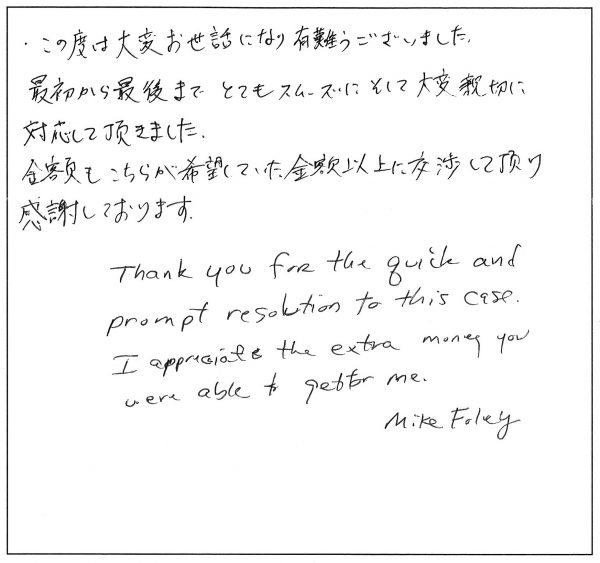 ・この度は大変お世話になり有難うございました。
最初から最後まで とてもスムーズに そして大変親切に
対応して頂きました。
金額もこちらが希望していた金額以上に交渉して頂り
感謝しております。
Thank you for the quick and
prompt resolution to this case.
I appreciate the extra money you
were able to get for me.
Mike Foley